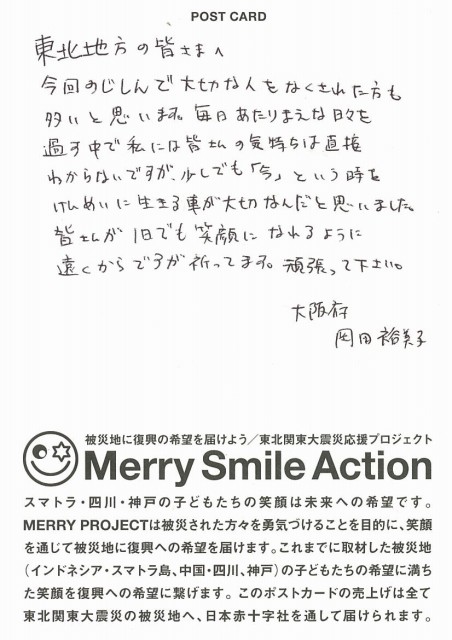 POST CARD
東北地方の皆さまへ
今回のじしんで大切な人をなくされた方も
多いと思います。毎日あたりまえな日々を
過す中で私には皆さんの気持ちは直接
わからないですが、少しでも「今」という時を
けんめいに生きる事が大切なんだと思いました。
皆さんが1日でも笑顔になれるように
遠くからですが祈ってます。頑張って下さい。
大阪府
岡田裕美子
被災地に復興の希望を届けよう／東北関東大震災応援プロジェクト
Merry Smile Action
スマトラ・四川・神戸の子どもたちの笑顔は未来への希望です。
MERRY PROJECTは被災された方々を勇気づけることを目的に、笑顔
を通じて被災地に復興への希望を届けます。これまでに取材した被災地
（インドネシア・スマトラ島、中国・四川、神戸）の子どもたちの希望に満ち
た笑顔を復興への希望に繋げます。このポストカードの売上げは全て
東北関東大震災の被災地へ、日本赤十字社を通して届けられます。